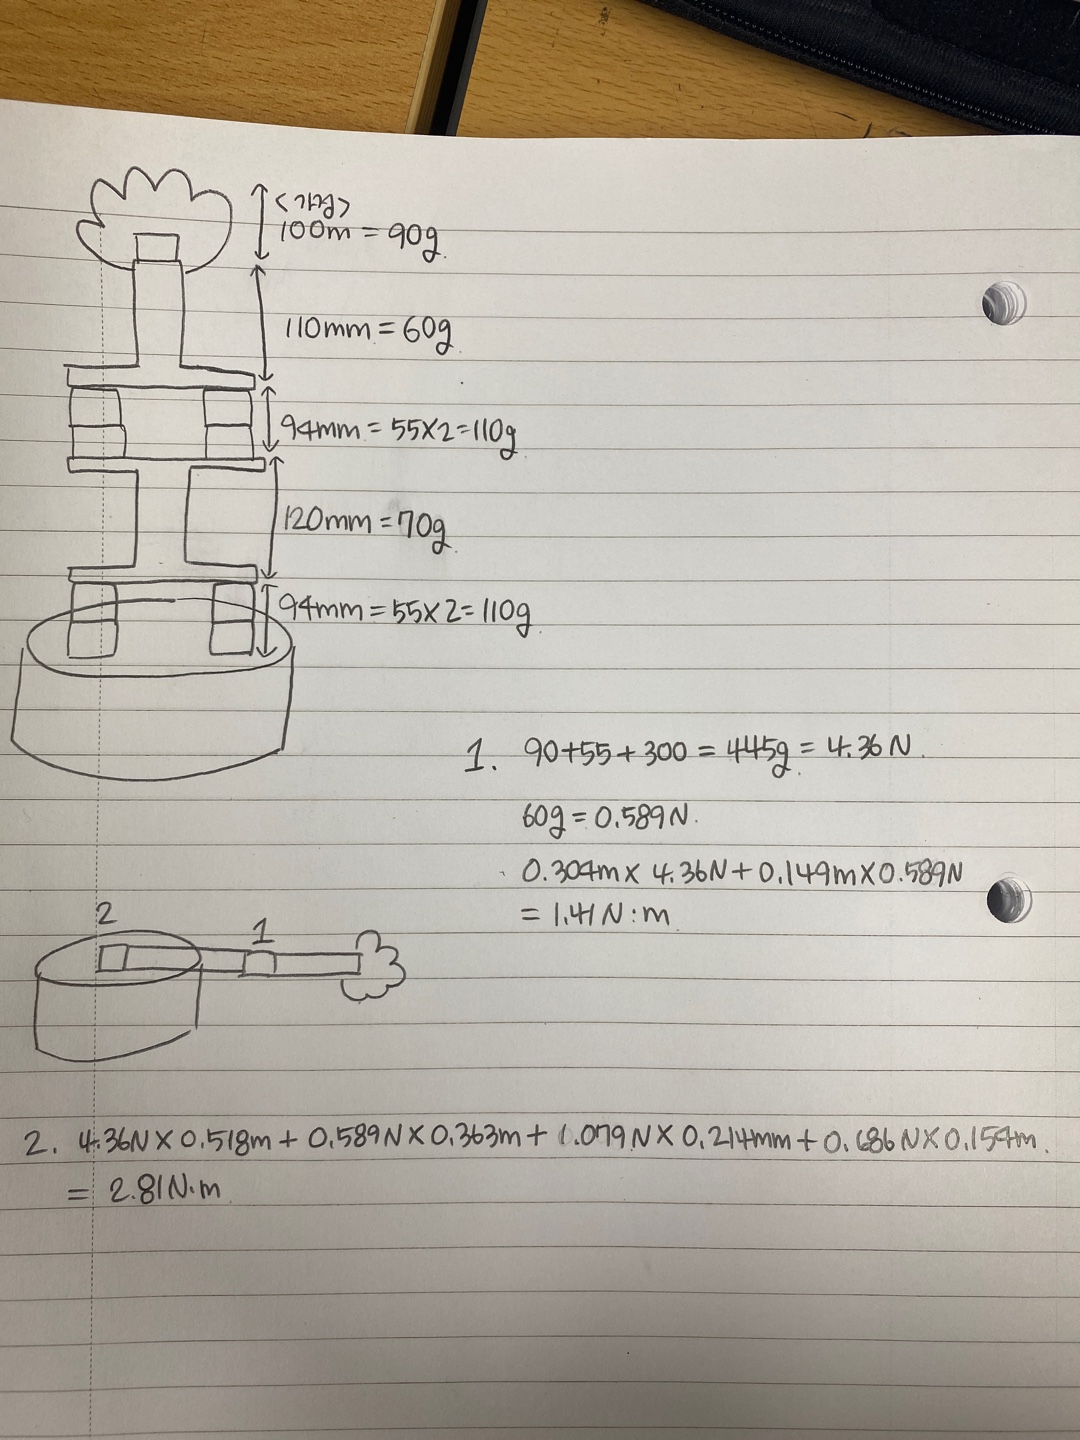 <가정>
100m = 90g.
110mm = 60g
94mm = 55×2=110g
120mm = 70g
94mm = 55×2=110g
1. 90+55+300 = 445g = 4.36N.
60g = 0.589N.
0.304m× 4.36N+0.149m×0.589N
= 1.41N·m
2
1
2. 4.36N×0.518m + 0.589N×0.363m + 1.079N×0.214mm + 0.686N×0.154m.
= 2.81N·m